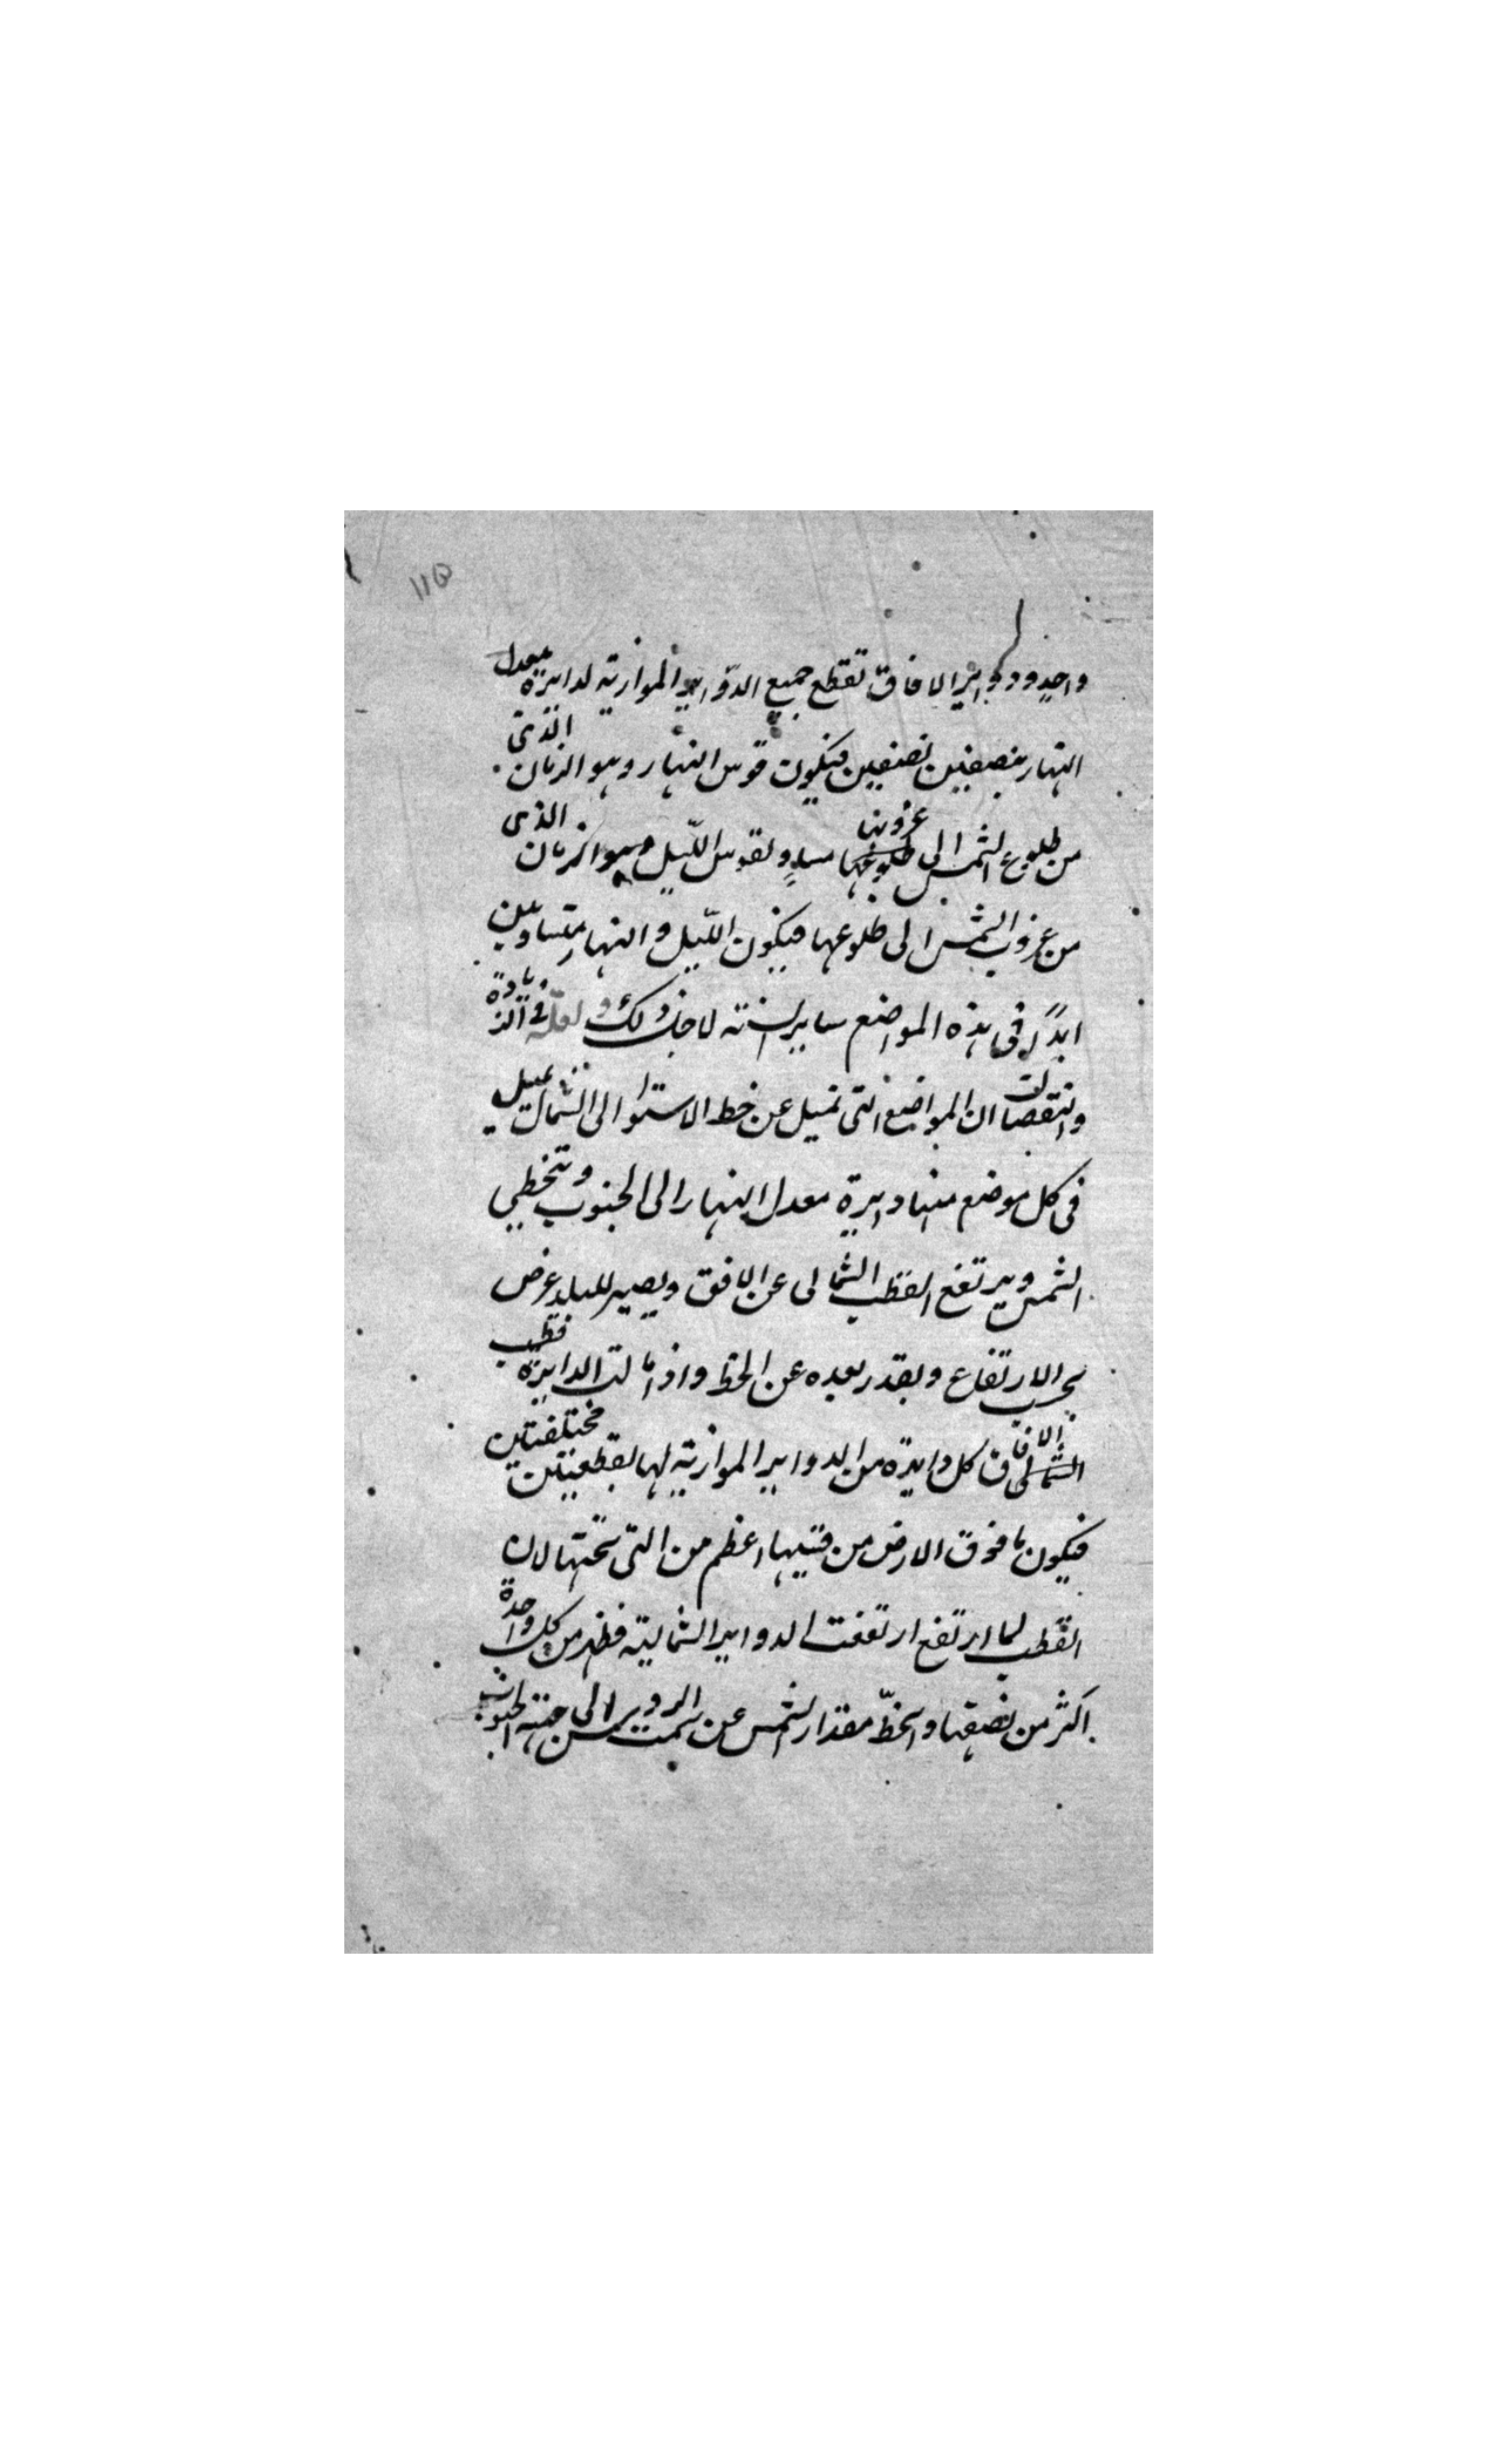 ١١٥
واحد ودواير الافاق تقطع جميع الدّواير الموازية لدايرة معدل
النهار بنصفين نصفين فيكون قوس النهار وهو الزمان الذى
من طلوع الشمس الى غروبها مساوٍ لقوس اللّيل وهو الزمان الذى
من غروب الشمس الى طلوعها فيكون اللّيل والنهار متساويين
ابدًا فى هذه المواضع ساير السنة لاجل ذلك ولعلّة فى الزيادة
والنقصان ان المواضع التى تميل عن خط الاستوا الى الشمال تميل
فى كل موضع منها دايرة معدل النهار الى الجنوب وتنخطى
الشمس ويرتفع القطب الشمالى عن الافق ويصير للبلد عرض
بحسب الارتفاع وبقدر بعده عن الخط واذا مالت الدايرة قطب
الشمالى الافاق كل دايرة من الدواير الموازية لها بقطعتين مختلفتين
فيكون ما فوق الارض من قسيها اعظم من التى تحتها لان
القطب لما ارتفع ارتفعت الدواير الشمالية فظهر من كل واحدة
اكثر من نصفها وانحطّ مقدار الشمس عن سمت الرويس الى جهة الجنوب